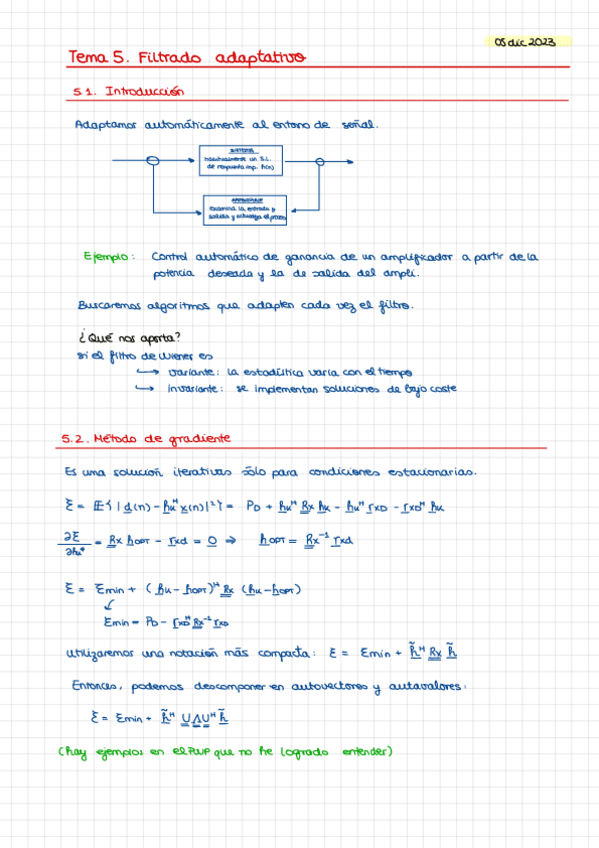 05 dic 2023
Tema 5. Filtrado adaptativo
5.1. Introducción
Adaptamos automáticamente al entorno de señal.
SISTEMA
habitualmente un S.L.
de respuesta imp. h(n)
APRENDIZAJE
examina la entrada y
salida y actualiza el proceso
Ejemplo: Control automático de ganancia de un amplificador a partir de la
potencia deseada y la de salida del ampli.
Buscaremos algoritmos que adapten cada vez el filtro.
¿Qué nos aporta?
si el filtro de Wiener es
↳ variante: la estadística varía con el tiempo
↳ invariante: se implementan soluciones de bajo coste
5.2. Método de gradiente
Es una solución iterativas sólo para condiciones estacionarias.
ξ = E{|d(n) - hw^H x(n)|²} = P_D + hw^H Rx hw - hw^H r_XD - r_XD^H hw
∂ξ/∂hw* = Rx h_OPT - r_xd = 0 ⇒ h_OPT = Rx⁻¹ r_xd
ξ = ξmin + (hw - h_OPT)^H Rx (hw - h_OPT)
ξmin = P_D - r_XD^H Rx⁻¹ r_XD
Utilizaremos una notación más compacta: ξ = ξmin + h̃^H Rx h̃
Entonces, podemos descomponer en autovectores y autovalores:
ξ = ξmin + h̃^H U Λ U^H h̃
(hay ejemplos en el PWP que no he logrado entender)